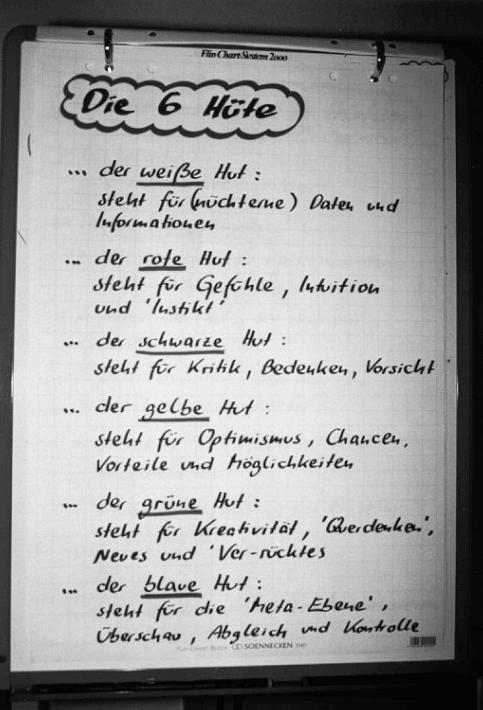 Flip Chart System 2000
Die 6 Hüte
... der weiße Hut :
steht für (nüchterne) Daten und
Informationen
... der rote Hut :
steht für Gefühle, Intuition
und 'Instikt'
... der schwarze Hut :
steht für Kritik, Bedenken, Vorsicht
... der gelbe Hut :
steht für Optimismus, Chancen,
Vorteile und Möglichkeiten
... der grüne Hut :
steht für Kreativität, 'Querdenken',
Neues und 'Ver-rücktes
... der blaue Hut :
steht für die 'Meta-Ebene',
Überschau, Abgleich und Kontrolle
SOENNECKEN